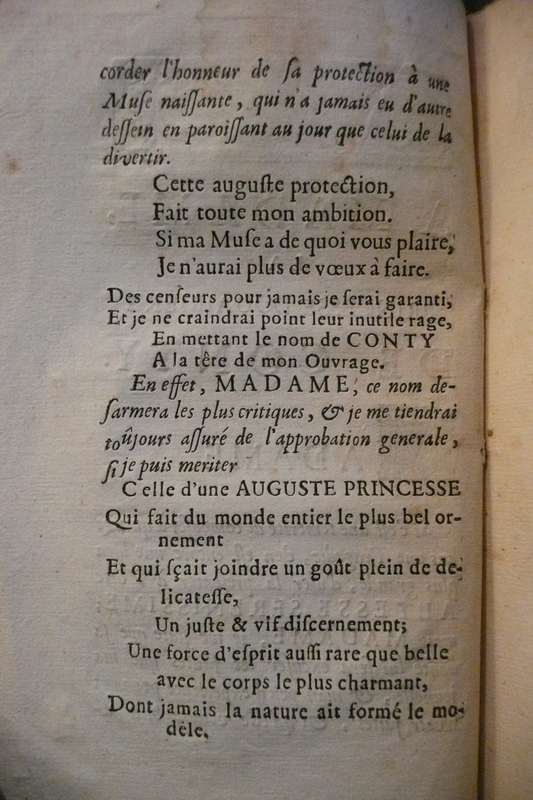 corder l'honneur de ſa protection à une
Muſe naiſſante, qui n'a jamais eu d'autre
deſſein en paroiſſant au jour que celui de la
divertir.
Cette auguſte protection,
Fait toute mon ambition.
Si ma Muſe a de quoi vous plaire,
Je n'aurai plus de vœux à faire.
Des cenſeurs pour jamais je ſerai garanti,
Et je ne craindrai point leur inutile rage,
En mettant le nom de CONTY
A la tête de mon Ouvrage.
En effet, MADAME, ce nom de-
ſarmera les plus critiques, & je me tiendrai
toûjours aſſuré de l'approbation generale,
ſi je puis meriter
Celle d'une AUGUSTE PRINCESSE
Qui fait du monde entier le plus bel or-
nement
Et qui ſçait joindre un goût plein de de-
licateſſe,
Un juſte & vif diſcernement;
Une force d'eſprit auſſi rare que belle
avec le corps le plus charmant,
Dont jamais la nature ait formé le mo-
dèle.